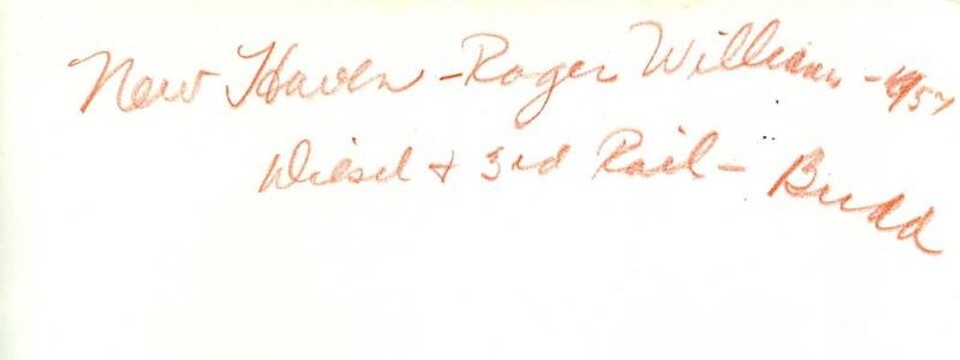 New Haven - Roger Williams - 1957
Diesel + 3rd Rail - Budd